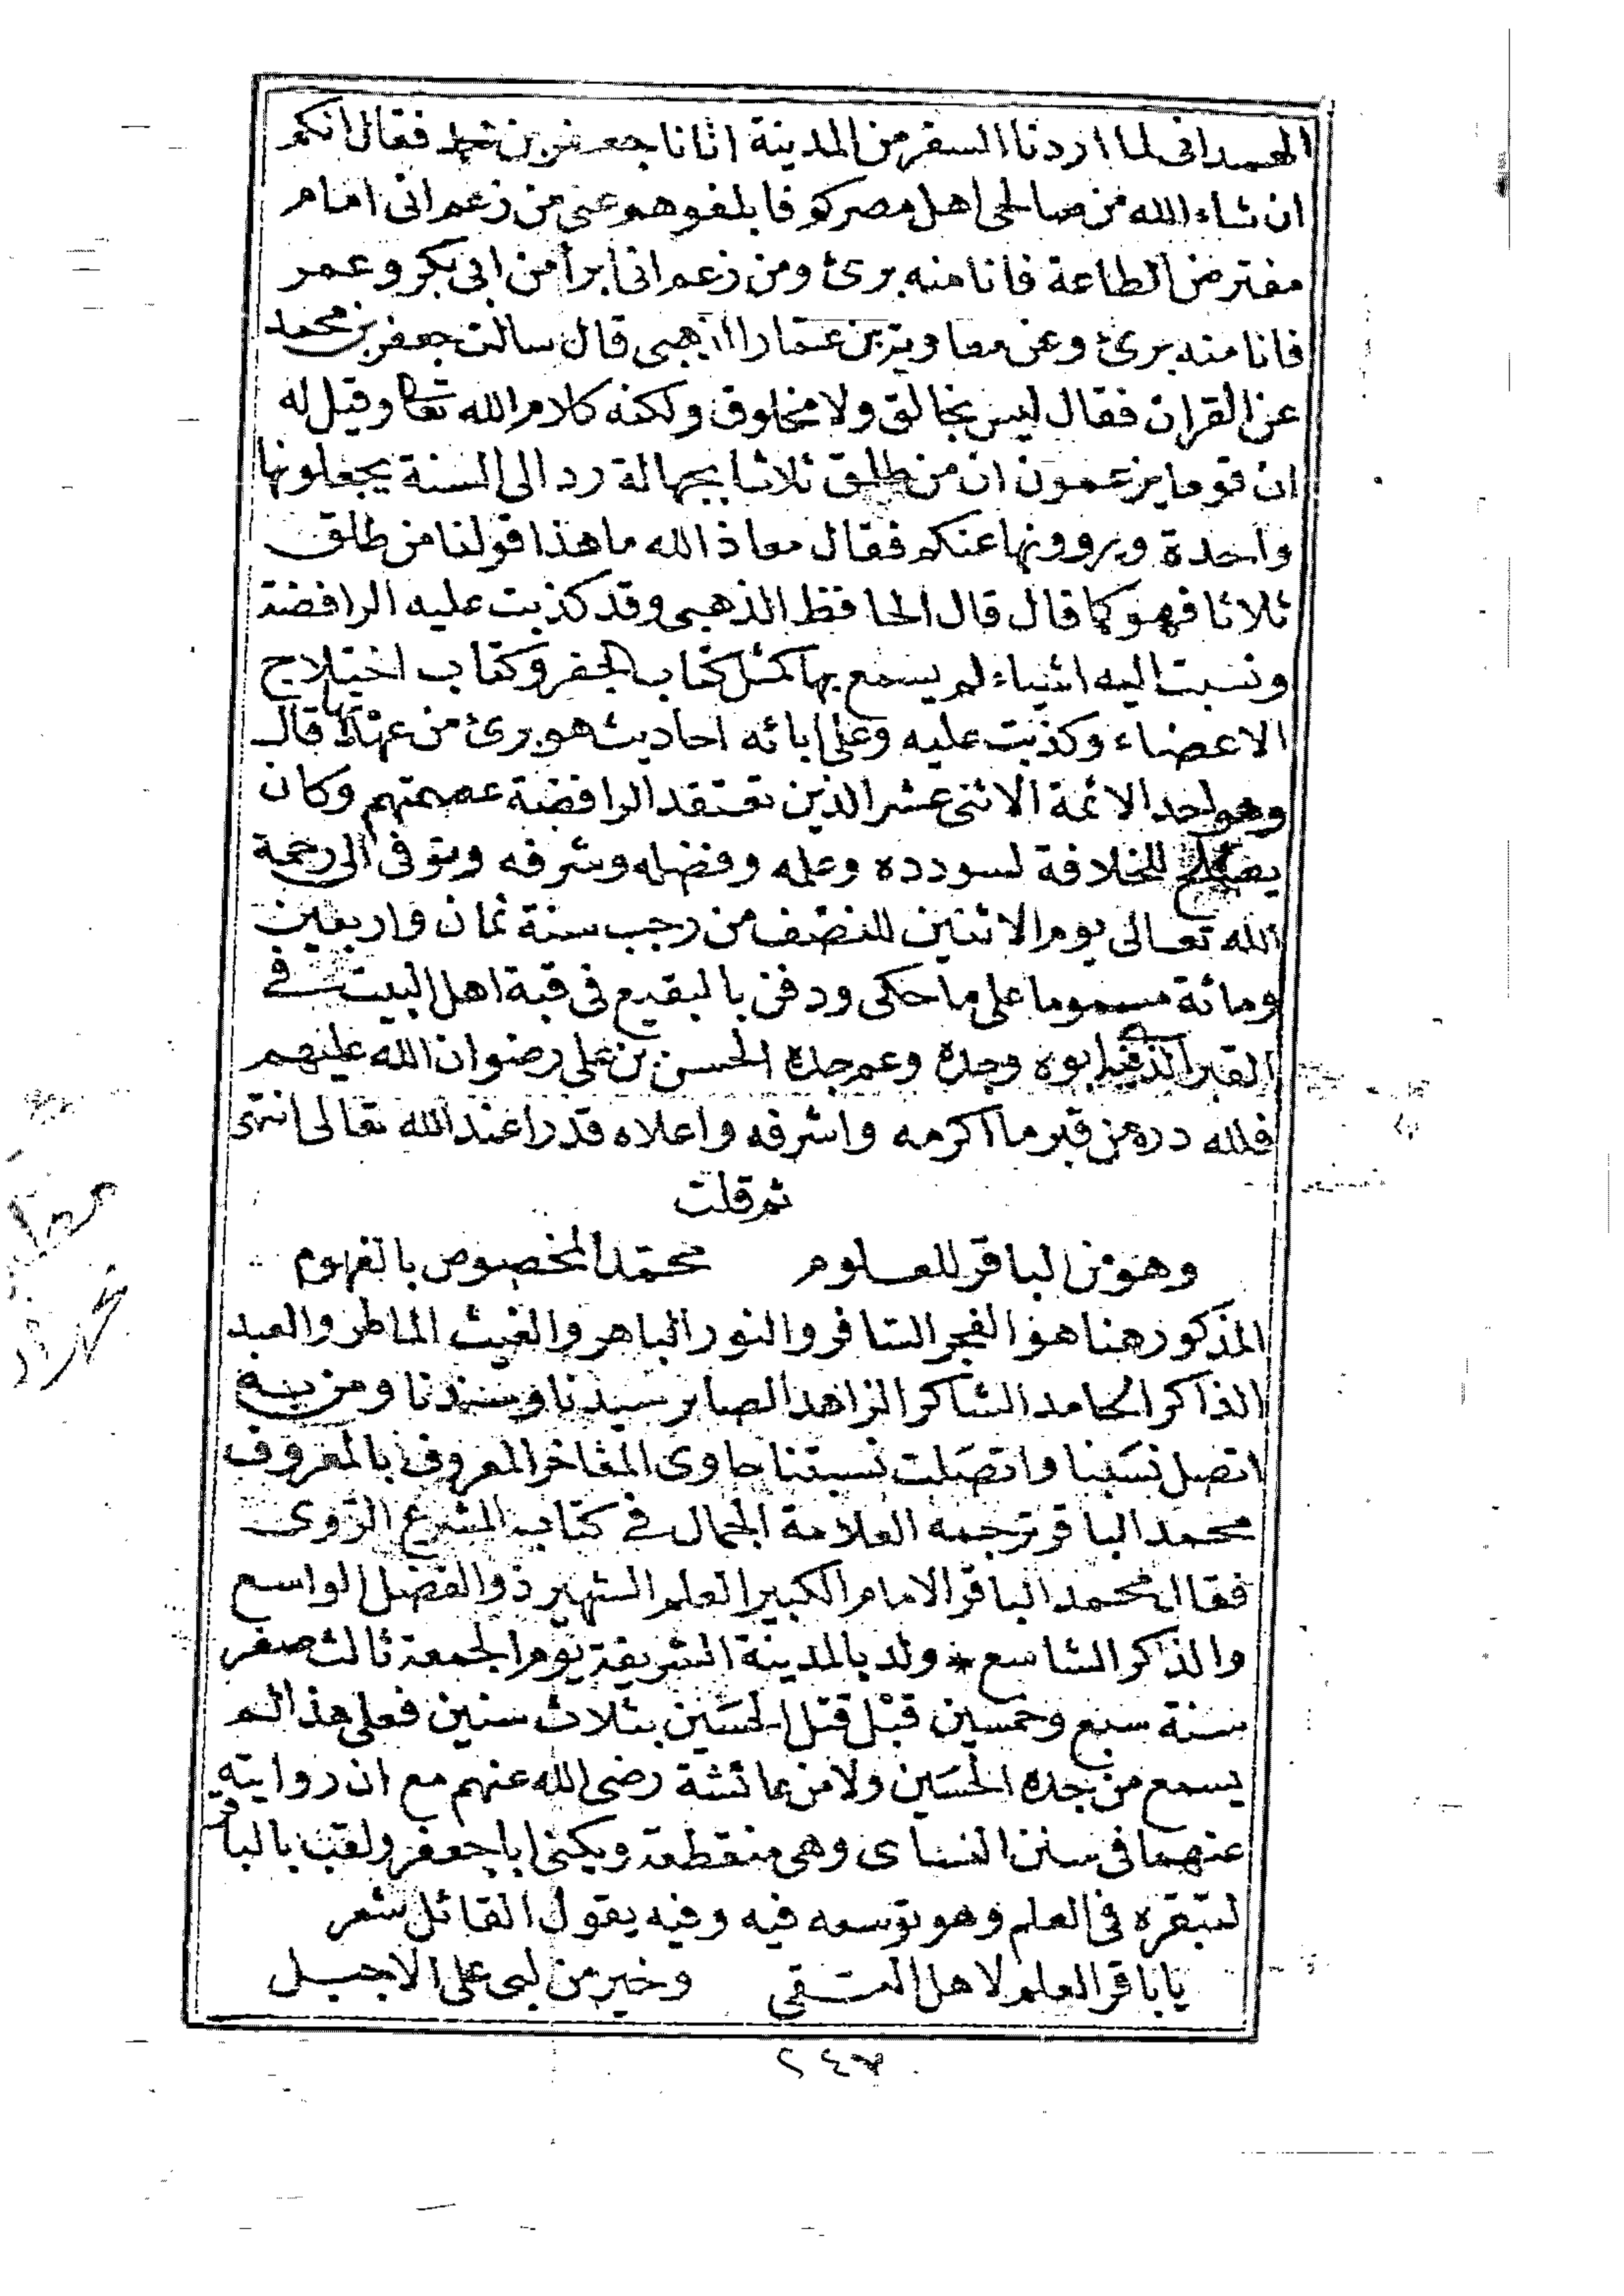 الهمدانى لما اردنا السفر من المدينة اتانا جعفر بن محمد فقال انكم
ان شاء الله من صالحى اهل مصركم فابلغوهم عنى من زعم انى امام
مفترض الطاعة فانا منه برئ ومن زعم انى ابرأ من ابى بكر وعمر
فانا منه برئ وعن معاوية بن عمار الذهبى قال سالت جعفر بن محمد
عن القران فقال ليس بخالق ولا مخلوق ولكنه كلام الله تعالى وقيل له
ان قوما يزعمون ان من طلق ثلاثا بجهالة رد الى السنة يجعلونها
واحدة ويروونها عنكم فقال معاذ الله ما هذا قولنا من طلق
ثلاثا فهو كما قال قال الحافظ الذهبى وقد كذبت عليه الرافضة
ونسبت اليه اشياء لم يسمع بها كمثل كتاب الجفر وكتاب اختلاج
الاعضاء وكذبت عليه وعلى ابائه احاديث هو برئ من عهدتها قال
وهو احد الائمة الاثنى عشر الذين تعتقد الرافضة عصمتهم وكان
يصلح للخلافة لسودده وعلمه وفضله وشرفه وتوفى الى رحمة
الله تعالى يوم الاثنين للنصف من رجب سنة ثمان واربعين
ومائة مسموما على ما حكى ودفن بالبقيع فى قبة اهل البيت فى
القبر الذى فيه ابوه وجده وعم جده الحسن بن على رضوان الله عليهم
فلله دره من قبر ما اكرمه واشرفه واعلاه قدرا عند الله تعالى انتهى
ثم قلت
وهو من الباقر للعلوم محمد المخصوص بالفهوم
المذكور هنا هو الفجر السافر والنور الباهر والغيث الماطر والعبد
الذاكر الحامد الشاكر الزاهد الصابر سيدنا وسندنا ومن به
اتصل نسبنا واتصلت نسبتنا حاوى المفاخر المعروف بالمعروف
محمد الباقر ترجمه العلامة الجمال فى كتابه المشرع الروى
فقال محمد الباقر الامام الكبير العلم الشهير ذو الفضل الواسع
والذكر الشاسع * ولد بالمدينة الشريفة يوم الجمعة ثالث صفر
سنة سبع وخمسين قبل قتل الحسين بثلاث سنين فعلى هذا لم
يسمع من جده الحسين ولا من عائشة رضى الله عنهم مع ان روايته
عنهما فى سنن النساى وهى منقطعة ويكنى ابا جعفر ولقب بالباقر
لتبقره فى العلم وهو توسعه فيه وفيه يقول القائل شعر
يا باقر العلم لاهل التقى وخير من لبى على الاجبل